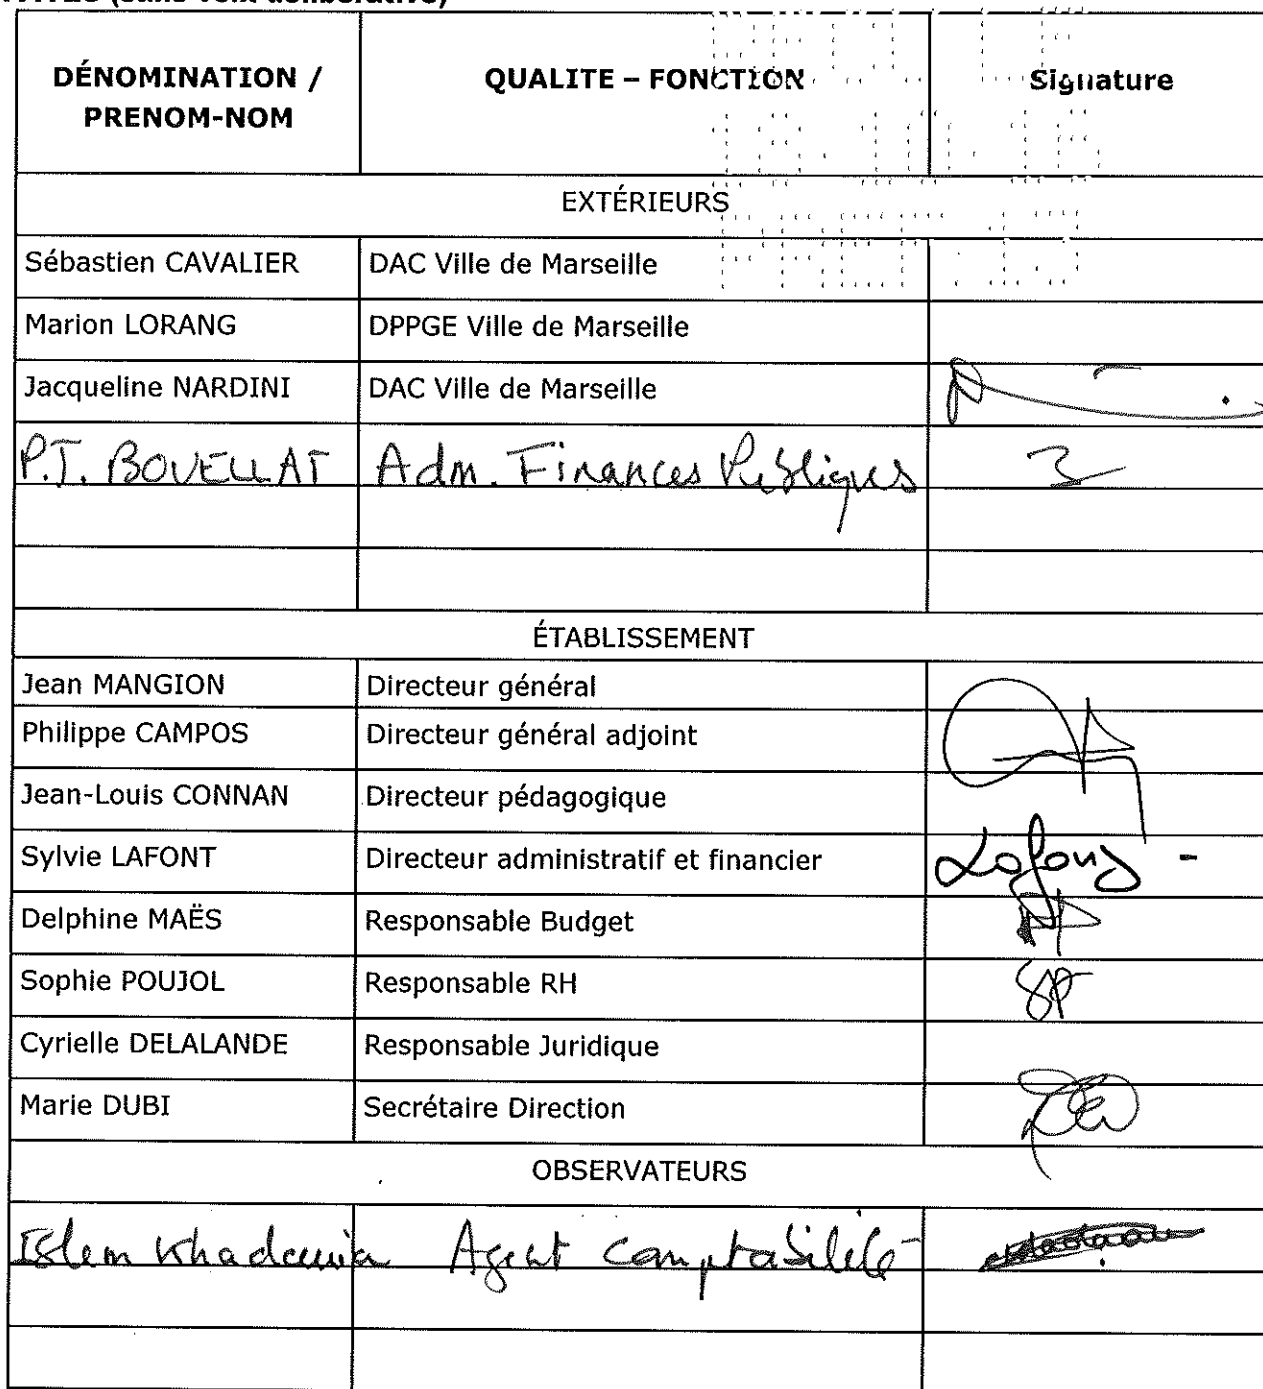 (sans voix délibérative)
DÉNOMINATION / PRENOM-NOM QUALITE – FONCTION Signature
18.10.16
EXTÉRIEURS
Sébastien CAVALIER DAC Ville de Marseille
Marion LORANG DPPGE Ville de Marseille
Jacqueline NARDINI DAC Ville de Marseille
P.J. BOVELLAT Adm. Finances Publiques
ÉTABLISSEMENT
Jean MANGION Directeur général
Philippe CAMPOS Directeur général adjoint
Jean-Louis CONNAN Directeur pédagogique
Sylvie LAFONT Directeur administratif et financier
Delphine MAËS Responsable Budget
Sophie POUJOL Responsable RH
Cyrielle DELALANDE Responsable Juridique
Marie DUBI Secrétaire Direction
OBSERVATEURS
Islem Agent comptabilité